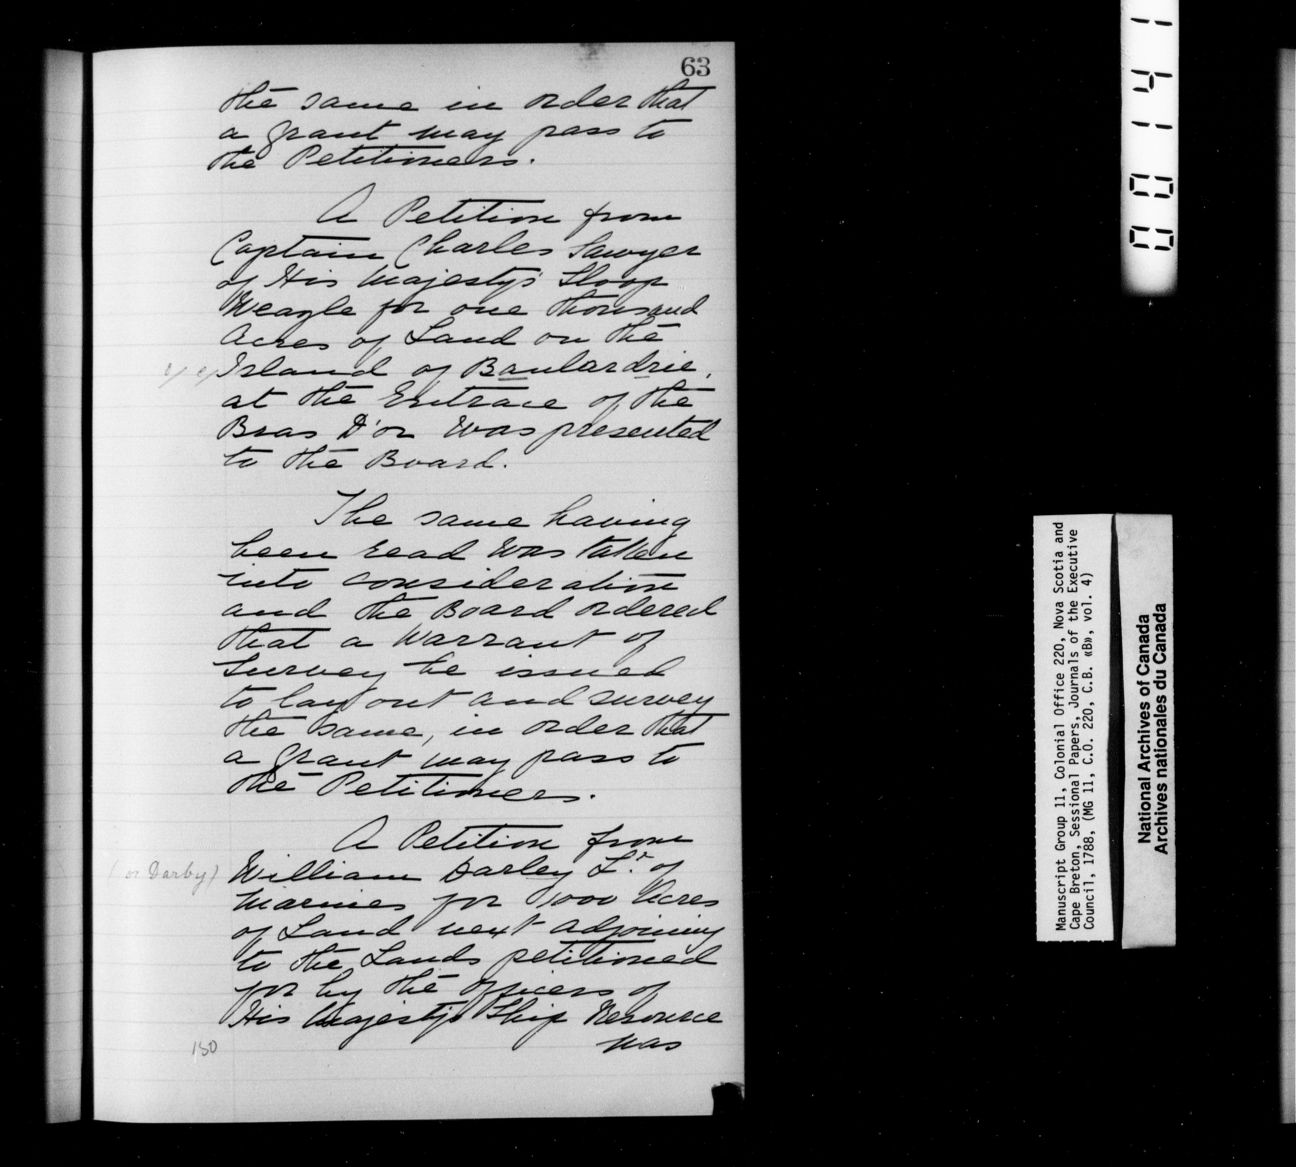 63
the same in order that
a grant may pass to
the Petitioners.
A Petition from
Captain Charles Sawyer
of His Majesty's Sloop
Weazle for one thousand
Acres of Land on the
Island of Boulardrie,
at the Entrace of the
Bras D'or was presented
to the Board.
The same having
been read was taken
into consideration
and the Board ordered
that a Warrant of
Survey be issued
to lay out and survey
the same, in order that
a grant may pass to
the Petitioners.
A Petition from
(or Darby) William Darley Lt. of
Marines for 1000 Acres
of Land next adjoining
to the Lands petitioned
for by the Officers of
His Majesty's Ship Resource
was
150
00141
Manuscript Group 11, Colonial Office 220, Nova Scotia and
Cape Breton, Sessional Papers, Journals of the Executive
Council, 1788, (MG 11, C.O. 220, C.B. «B», vol. 4)
National Archives of Canada
Archives nationales du Canada